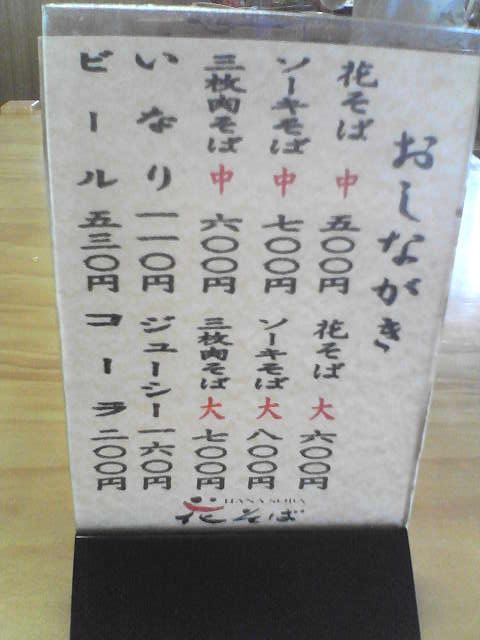 おしながき
花そば 中 五〇〇円
花そば 大 六〇〇円
ソーキそば 中 七〇〇円
ソーキそば 大 八〇〇円
三枚肉そば 中 六〇〇円
三枚肉そば 大 七〇〇円
いなり 一一〇円
ジューシー 一六〇円
ビール 五三〇円
コーラ 二〇〇円
HANA SOBA
花そば